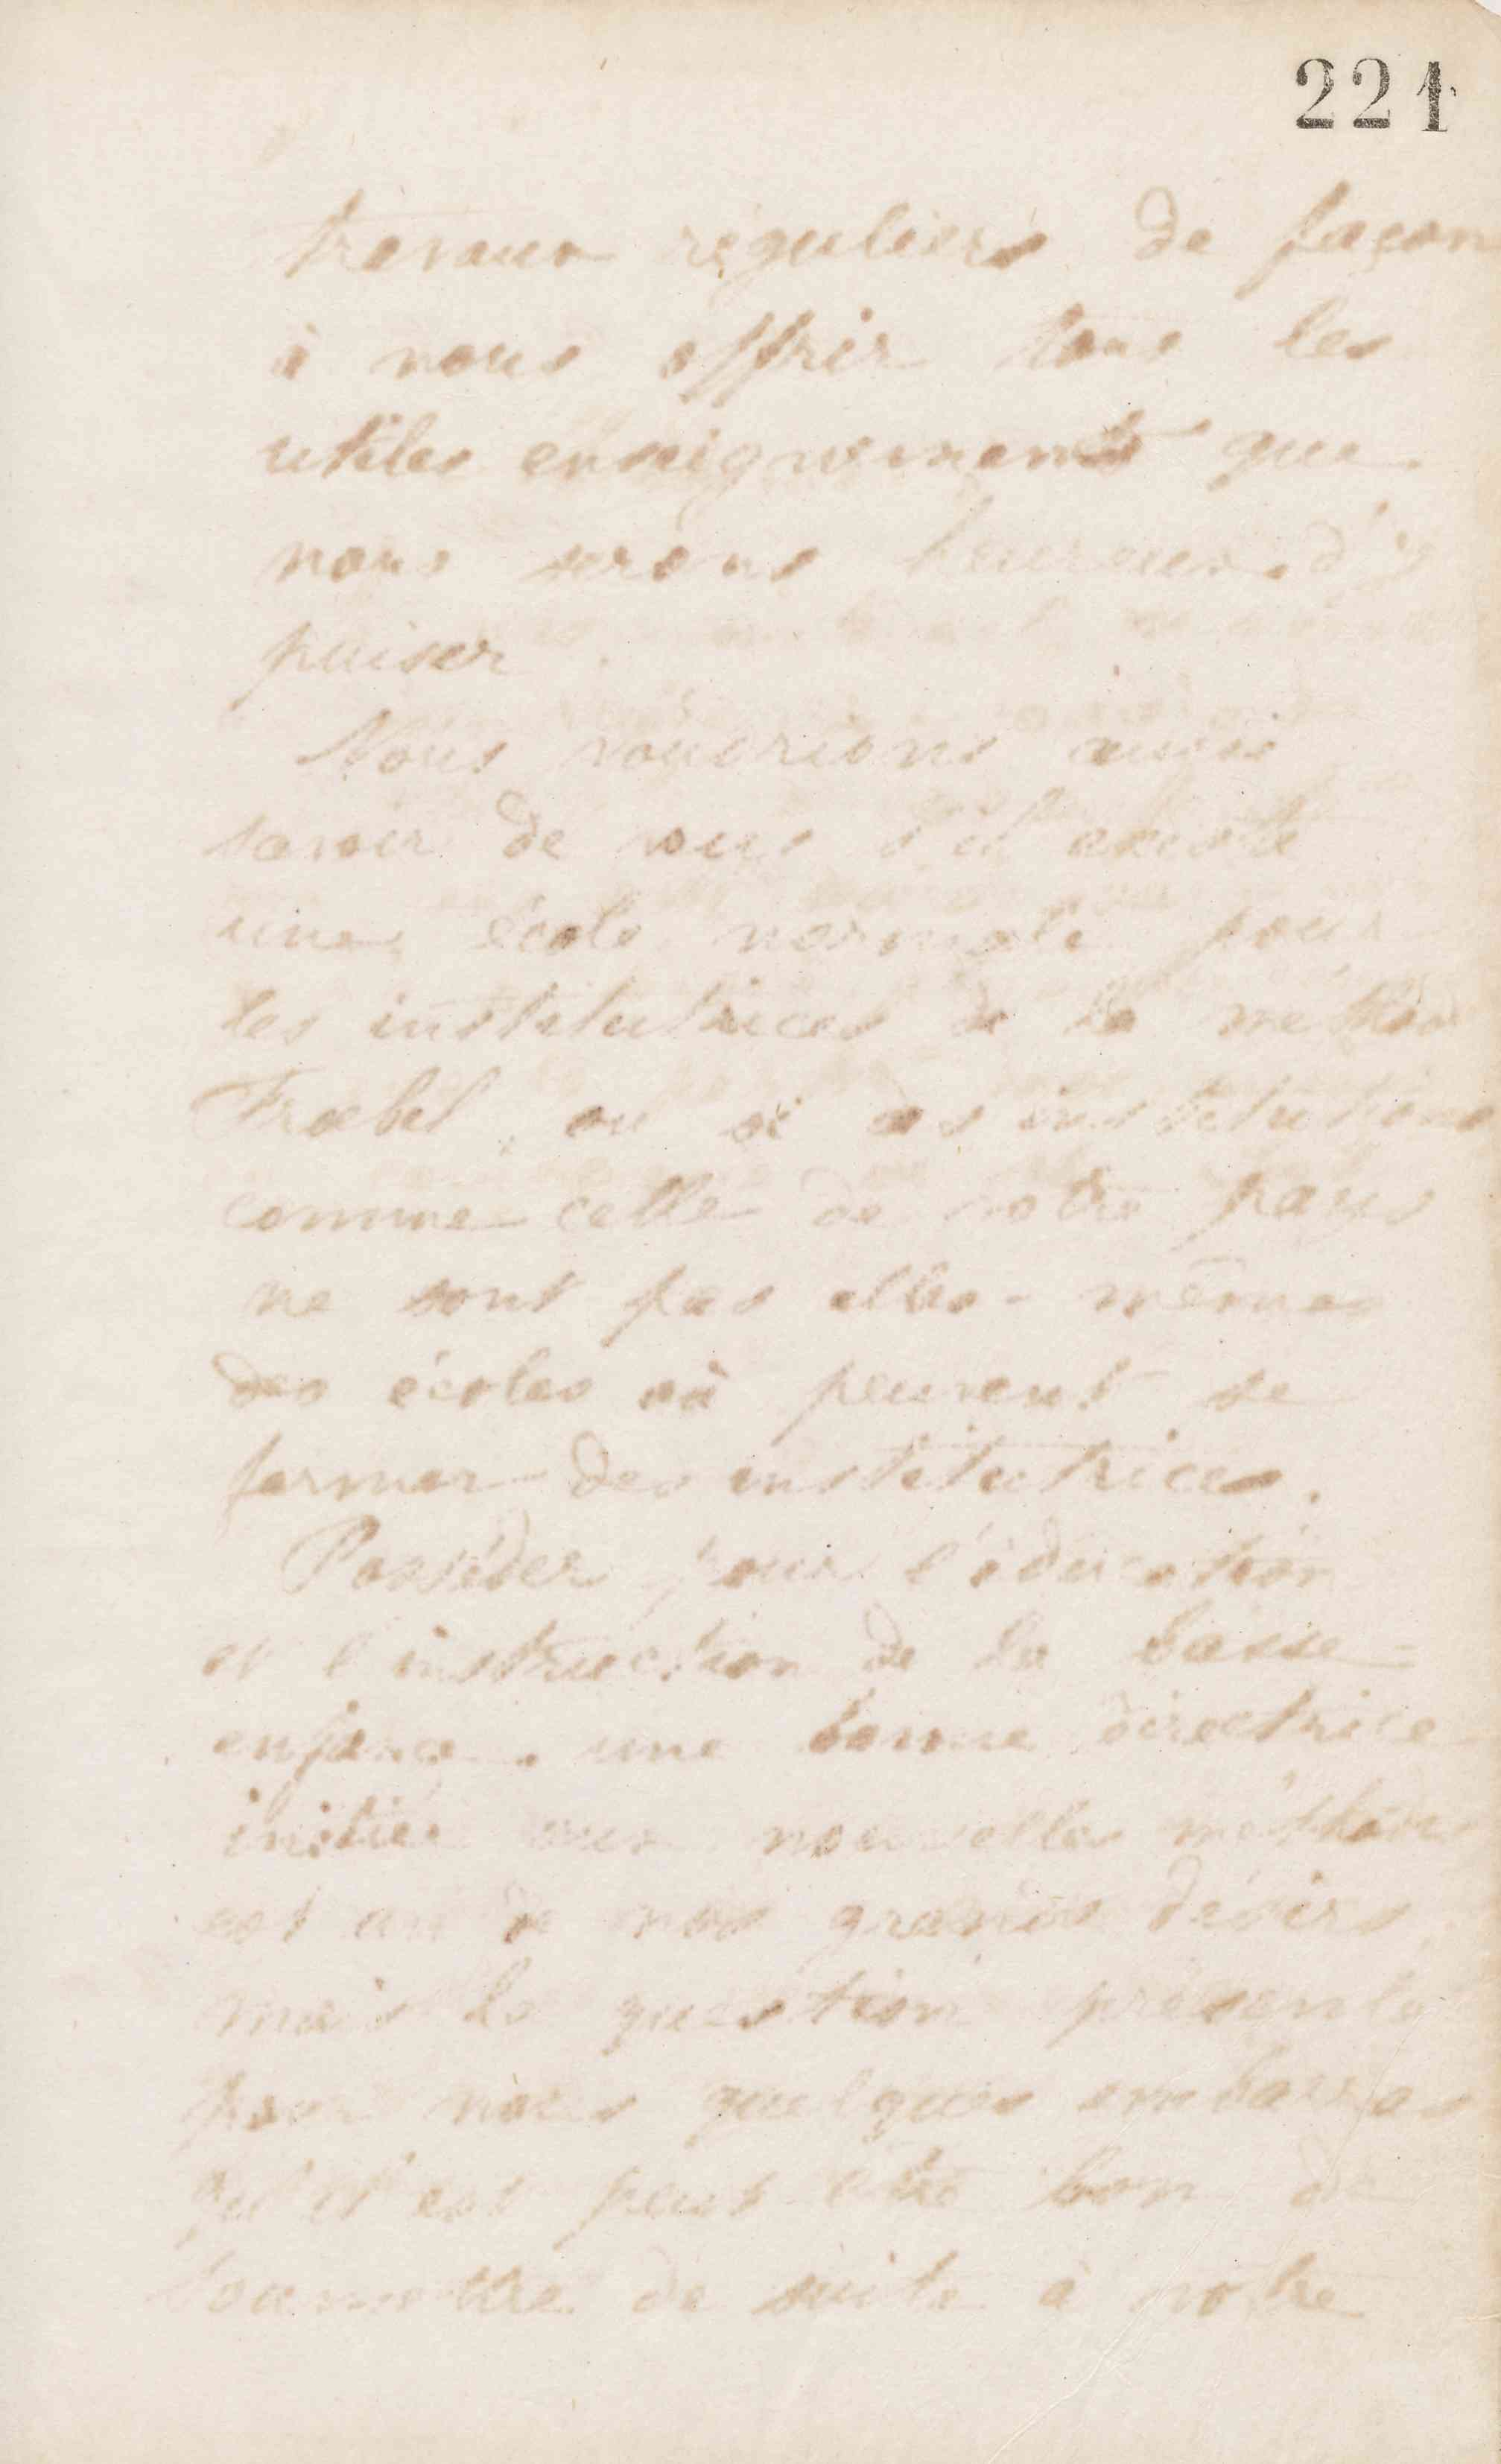 221
travaux réguliers de façon
à nous offrir tous les
utiles enseignements que
nous serons heureux d'y
puiser.
Nous voudrions aussi
savoir de vous s'il existe
une école normale pour
les institutrices de la méthode
Frœbel, ou si des institutions
comme celle de votre pays
ne sont pas elles-mêmes
des écoles où peuvent se
former des institutrices.
Posséder pour l'éducation
et l'instruction de la basse-
enfance, une bonne directrice
initiée aux nouvelles méthodes
est un de nos grands désirs
mais la question présente
pour nous quelques embarras
qu'il est peut-être bon de
soumettre de suite à votre